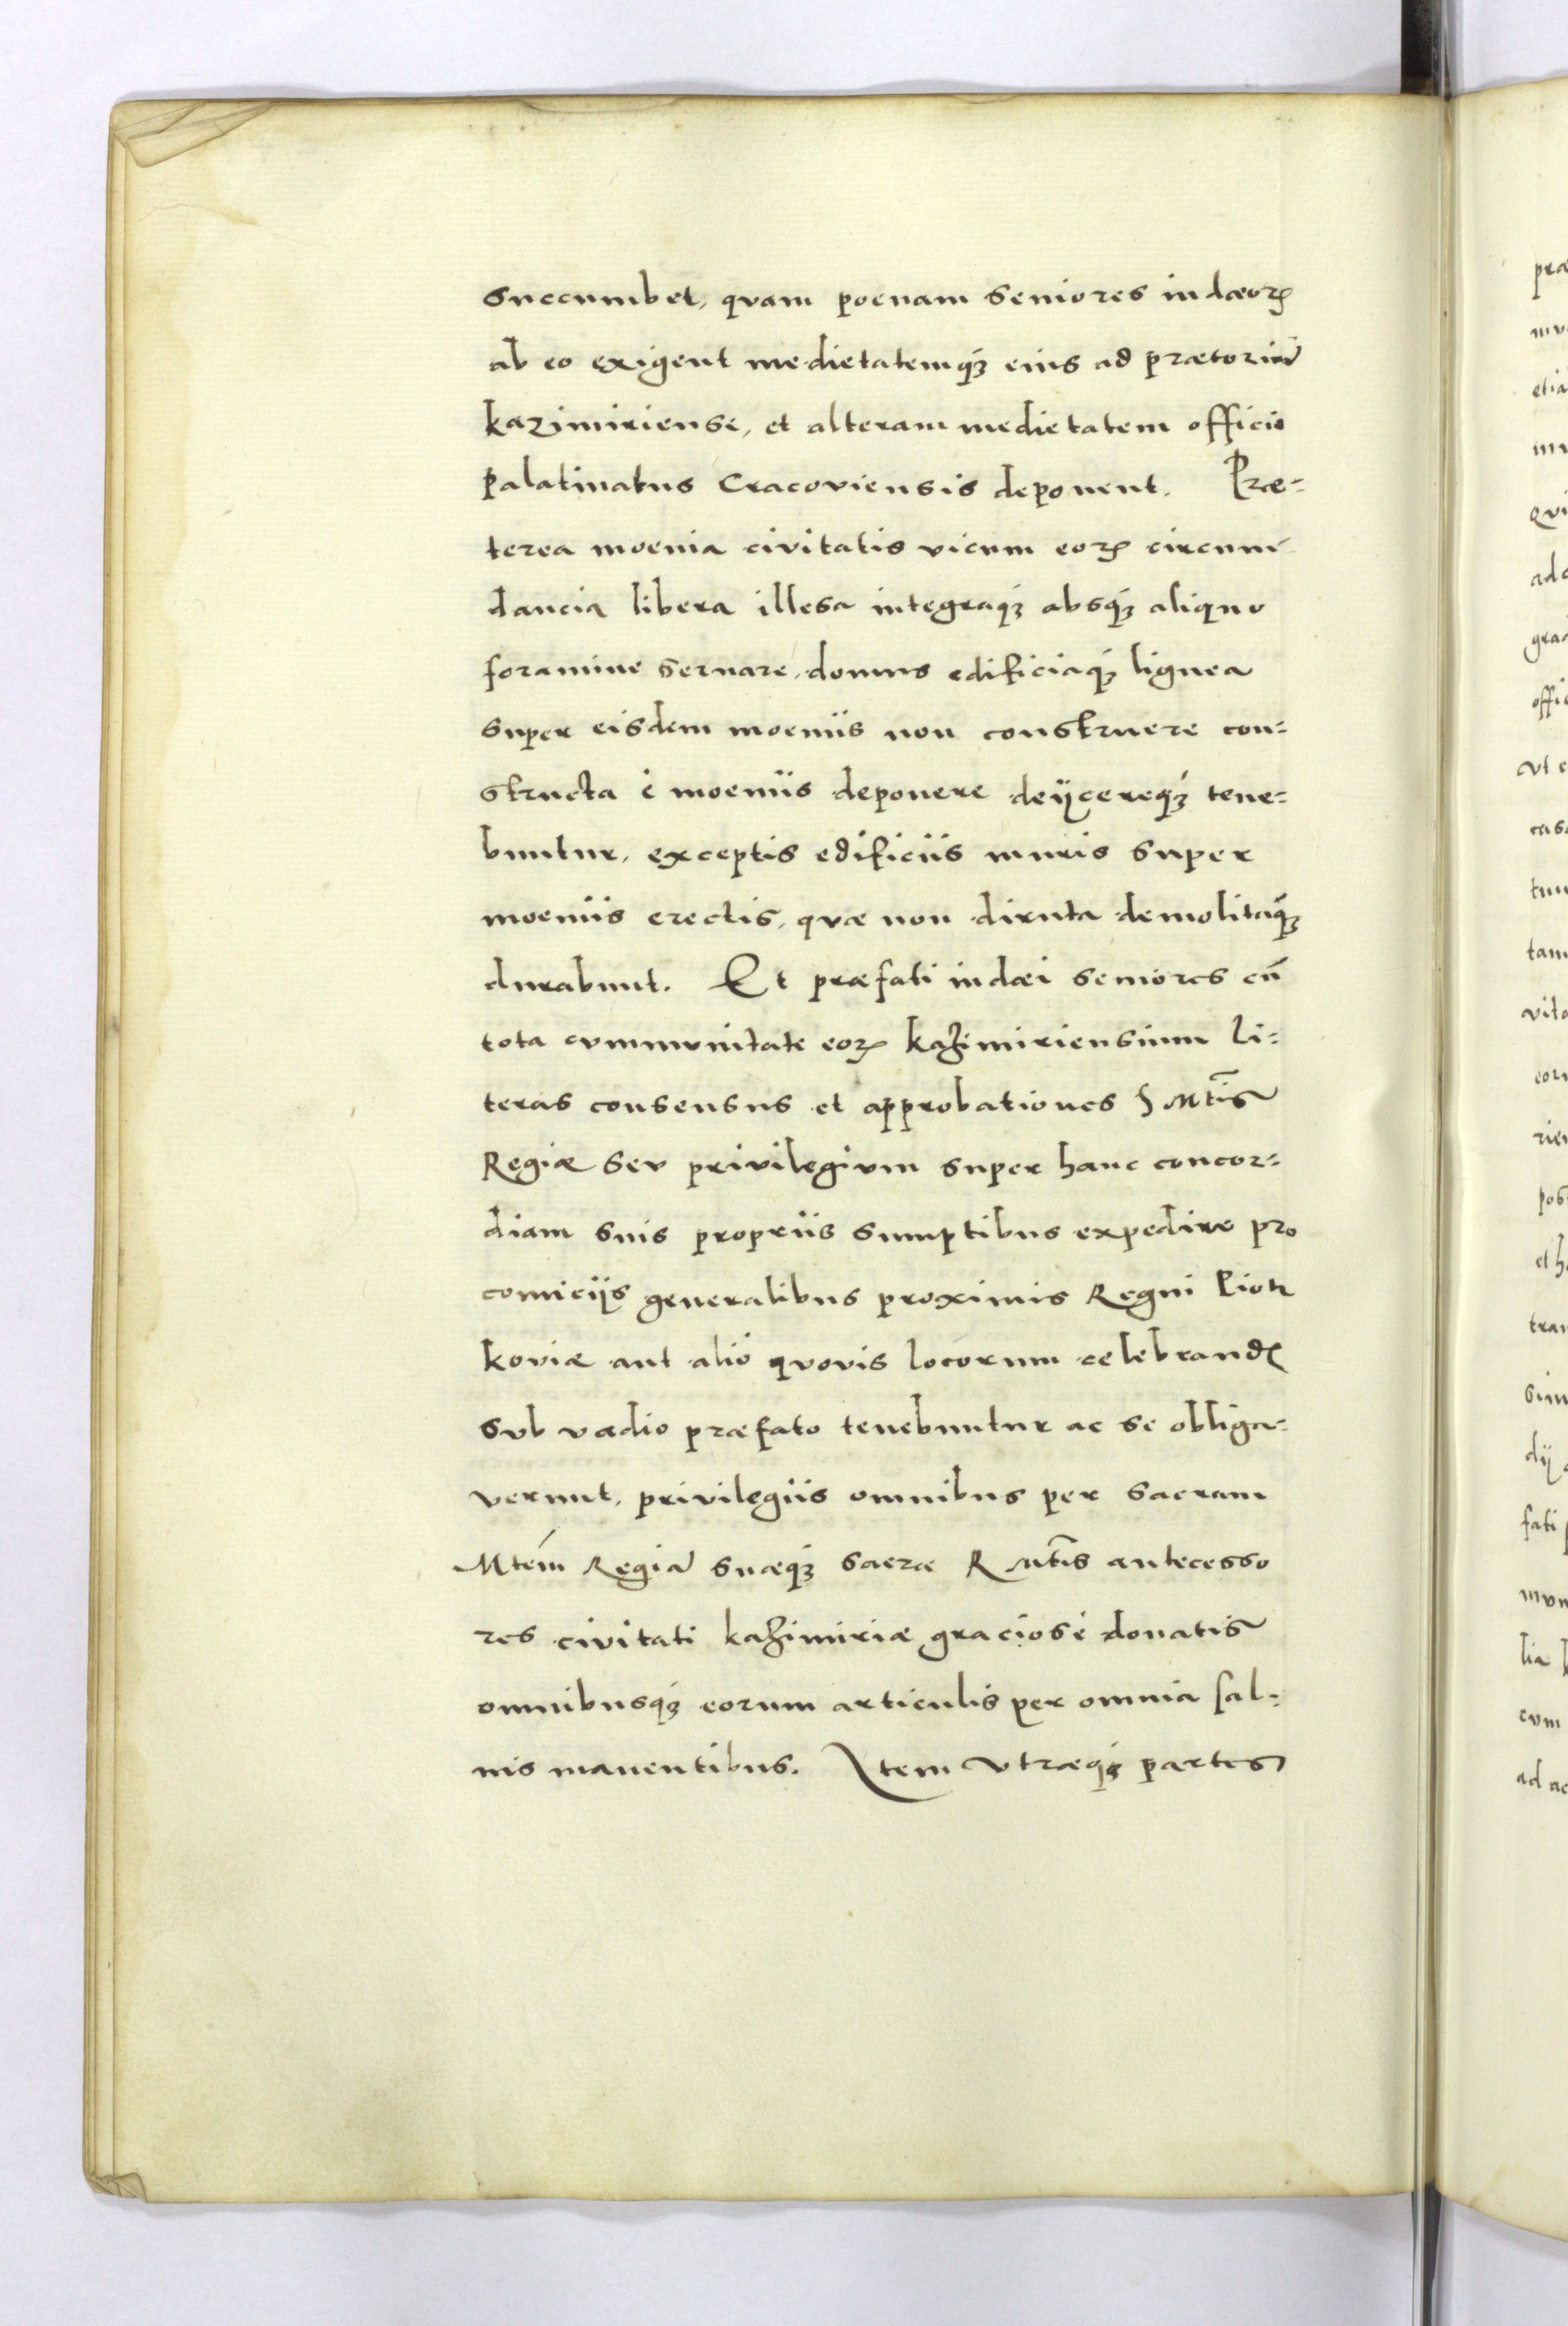 succumbet, quam poenam seniores iudæoꝝ
ab eo exigent medietatemqꝫ eius ad prætoriũ
kazimiriense, et alteram medietatem officio
palatinatus Cracoviensis deponent. Præ-
terea moenia civitatis vicum eoꝝ circum
dancia libera illesa integraqꝫ absqꝫ aliquo
foramine seruare, domus edificiaqꝫ lignea
super eisdem moeniis non construere con-
structa è moeniis deponere deijcereqꝫ tene-
buntur, exceptis edificiis muris super
moeniis erectis, quæ non diruta demolitaqꝫ
durabunt. Et præfati iudæi seniores cũ
tota communitate eoꝝ kazimiriensium li-
teras consensus et approbationes S Mtis
Regiæ seu privilegium super hanc concor-
diam suis propriis sumptibus expedire pro
comicijs generalibus proximis Regni Piotr
koviæ aut alio quovis locorum celebrandꝭ
sub vadio præfato tenebuntur ac se obliga-
verunt, privilegiis omnibus per sacram
Mtem Regiã suæqꝫ sacræ R Mtis antecesso
res civitati kazimiriæ graciose donatis
omnibusqꝫ eorum articulis per omnia sal-
uis manentibus. Item utræqꝫ partes
præ
etia
qui
offic
et h
dij
fati
lia
cum